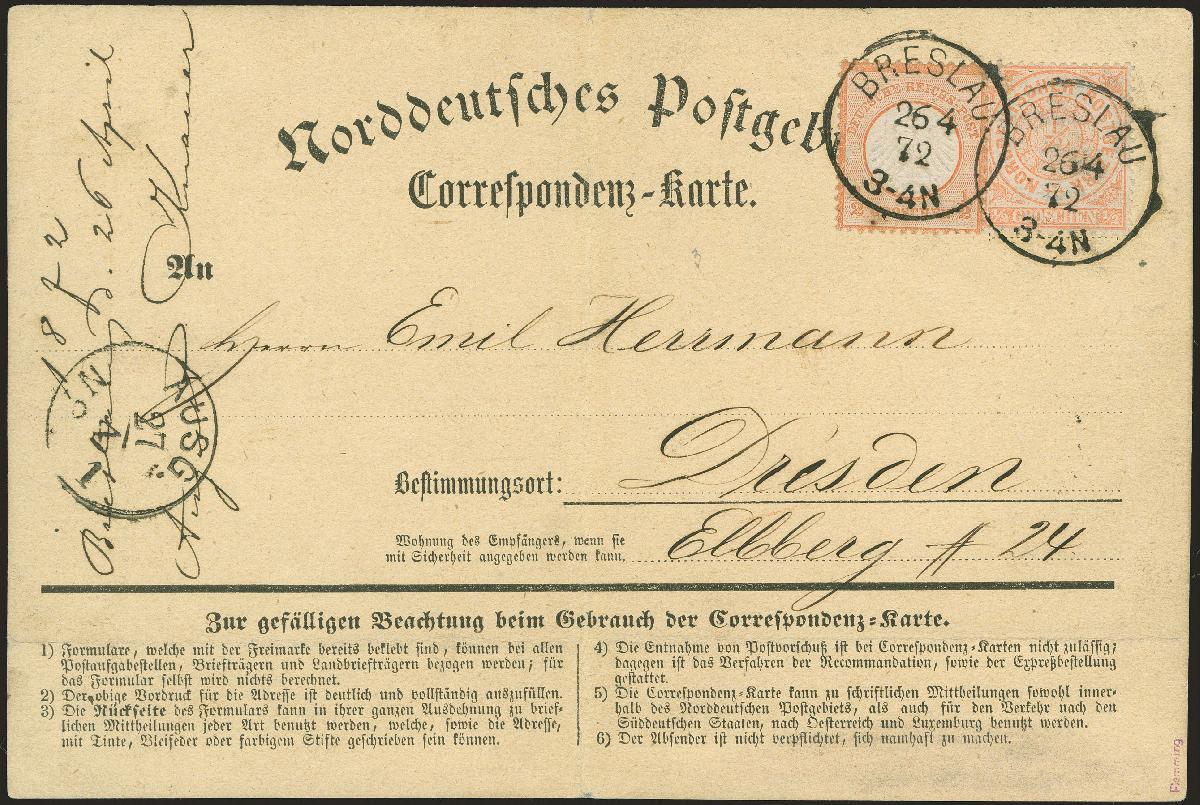 Norddeutsches Postgeb
Correspondenz-Karte.
DEUTSCHE REICHS-POST
1/2 GROSCHEN 1/2
BRESLAU
26 4
72
3-4N
BRESLAU
26 4
72
3-4N
1872
26 April
Knauer
An
Herrn Emil Herrmann
AUSG
27
4
N
Bestimmungsort: Dresden
Wohnung des Empfängers, wenn sie
mit Sicherheit angegeben werden kann.
Elbberg # 24
Zur gefälligen Beachtung beim Gebrauch der Correspondenz-Karte.
1) Formulare, welche mit der Freimarke bereits beklebt sind, können bei allen
Postaufgabestellen, Briefträgern und Landbriefträgern bezogen werden; für
das Formular selbst wird nichts berechnet.
2) Der obige Vordruck für die Adresse ist deutlich und vollständig auszufüllen.
3) Die Rückseite des Formulars kann in ihrer ganzen Ausdehnung zu brief-
lichen Mittheilungen jeder Art benutzt werden, welche, sowie die Adresse,
mit Tinte, Bleifeder oder farbigem Stifte geschrieben sein können.
4) Die Entnahme von Postvorschuß ist bei Correspondenz-Karten nicht zulässig;
dagegen ist das Verfahren der Recommandation, sowie der Expreßbestellung
gestattet.
5) Die Correspondenz-Karte kann zu schriftlichen Mittheilungen sowohl inner-
halb des Norddeutschen Postgebiets, als auch für den Verkehr nach den
Süddeutschen Staaten, nach Oesterreich und Luxemburg benutzt werden.
6) Der Absender ist nicht verpflichtet, sich namhaft zu machen.
Flemming